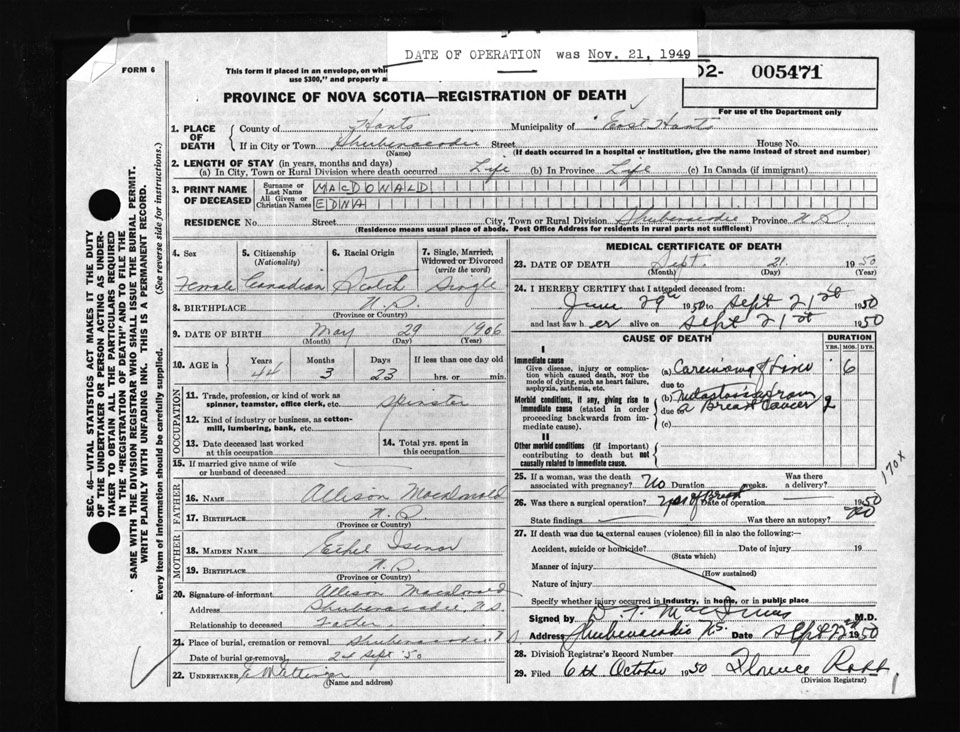 DATE OF OPERATION was Nov. 21, 1949
FORM 6
This form if placed in an envelope, on
use $300," and properly
02- 005471
PROVINCE OF NOVA SCOTIA—REGISTRATION OF DEATH
For use of the Department only
1. PLACE OF DEATH
County of Hants Municipality of East Hants
If in City or Town Shubenacadie Street House No.
(Name) (If death occurred in a hospital or institution, give the name instead of street and number)
2. LENGTH OF STAY (in years, months and days)
(a) In City, Town or Rural Division where death occurred Life (b) In Province Life (c) In Canada (if immigrant)
3. PRINT NAME OF DECEASED
Surname or Last Name MACDONALD
All Given or Christian Names EDNA
RESIDENCE No. Street City, Town or Rural Division Shubenacadie Province N.S.
(Residence means usual place of abode. Post Office Address for residents in rural parts not sufficient)
SEC. 46—VITAL STATISTICS ACT MAKES IT THE DUTY
OF THE UNDERTAKER OR PERSON ACTING AS UNDER-
TAKER TO OBTAIN ALL THE PARTICULARS REQUIRED
IN THE "REGISTRATION OF DEATH" AND TO FILE THE
SAME WITH THE DIVISION REGISTRAR WHO SHALL ISSUE THE BURIAL PERMIT.
WRITE PLAINLY WITH UNFADING INK. THIS IS A PERMANENT RECORD.
Every item of information should be carefully supplied. (See reverse side for instructions.)
4. Sex
Female
5. Citizenship
(Nationality)
Canadian
6. Racial Origin
Scotch
7. Single, Married, Widowed or Divorced
(write the word)
Single
8. BIRTHPLACE N.S.
(Province or Country)
9. DATE OF BIRTH May 29 1906
(Month) (Day) (Year)
10. AGE in Years Months Days If less than one day old
44 3 23 hrs. or min.
OCCUPATION
11. Trade, profession, or kind of work as
spinner, teamster, office clerk, etc. Spinster
12. Kind of industry or business, as cotton-
mill, lumbering, bank, etc.
13. Date deceased last worked
at this occupation
14. Total yrs. spent in
this occupation
15. If married give name of wife
or husband of deceased
FATHER
16. NAME Allison Macdonald
17. BIRTHPLACE N.S.
(Province or Country)
MOTHER
18. MAIDEN NAME Ethel Isenor
19. BIRTHPLACE N.S.
(Province or Country)
20. Signature of informant Allison Macdonald
Address Shubenacadie, N.S.
Relationship to deceased Father
21. Place of burial, cremation or removal Shubenacadie
Date of burial or removal 24 Sept '50
22. UNDERTAKER
(Name and address)
MEDICAL CERTIFICATE OF DEATH
23. DATE OF DEATH Sept. 21 1950
(Month) (Day) (Year)
24. I HEREBY CERTIFY that I attended deceased from:
June 29th 1950 to Sept 21st 1950
and last saw her alive on Sept 21st 1950
CAUSE OF DEATH
DURATION
YRS. MOS. DYS.
I
Immediate cause
Give disease, injury or complica-
tion which caused death, NOT the
mode of dying, such as heart failure,
asphyxia, asthenia, etc.
(a) Carcinoma of Liver 6
due to
Morbid conditions, if any, giving rise to
immediate cause (stated in order
proceeding backwards from im-
mediate cause).
(b) Metastasis from
due to Breast Cancer 2
(c)
II
Other morbid conditions (if important)
contributing to death but not
causally related to immediate cause.
170x
25. If a woman, was the death
associated with pregnancy? No Duration weeks.
Was there
a delivery?
26. Was there a surgical operation? Yes of Breast Date of operation 1950
State findings Was there an autopsy? no
27. If death was due to external causes (violence) fill in also the following:—
Accident, suicide or homicide? Date of injury 19
(State which)
Manner of injury
(How sustained)
Nature of injury
Specify whether injury occurred in industry, in home, or in public place
Signed by M.D.
Address Shubenacadie N.S. Date Sept 1950
28. Division Registrar's Record Number
29. Filed 6th October 1950 Florence Robb
(Division Registrar)